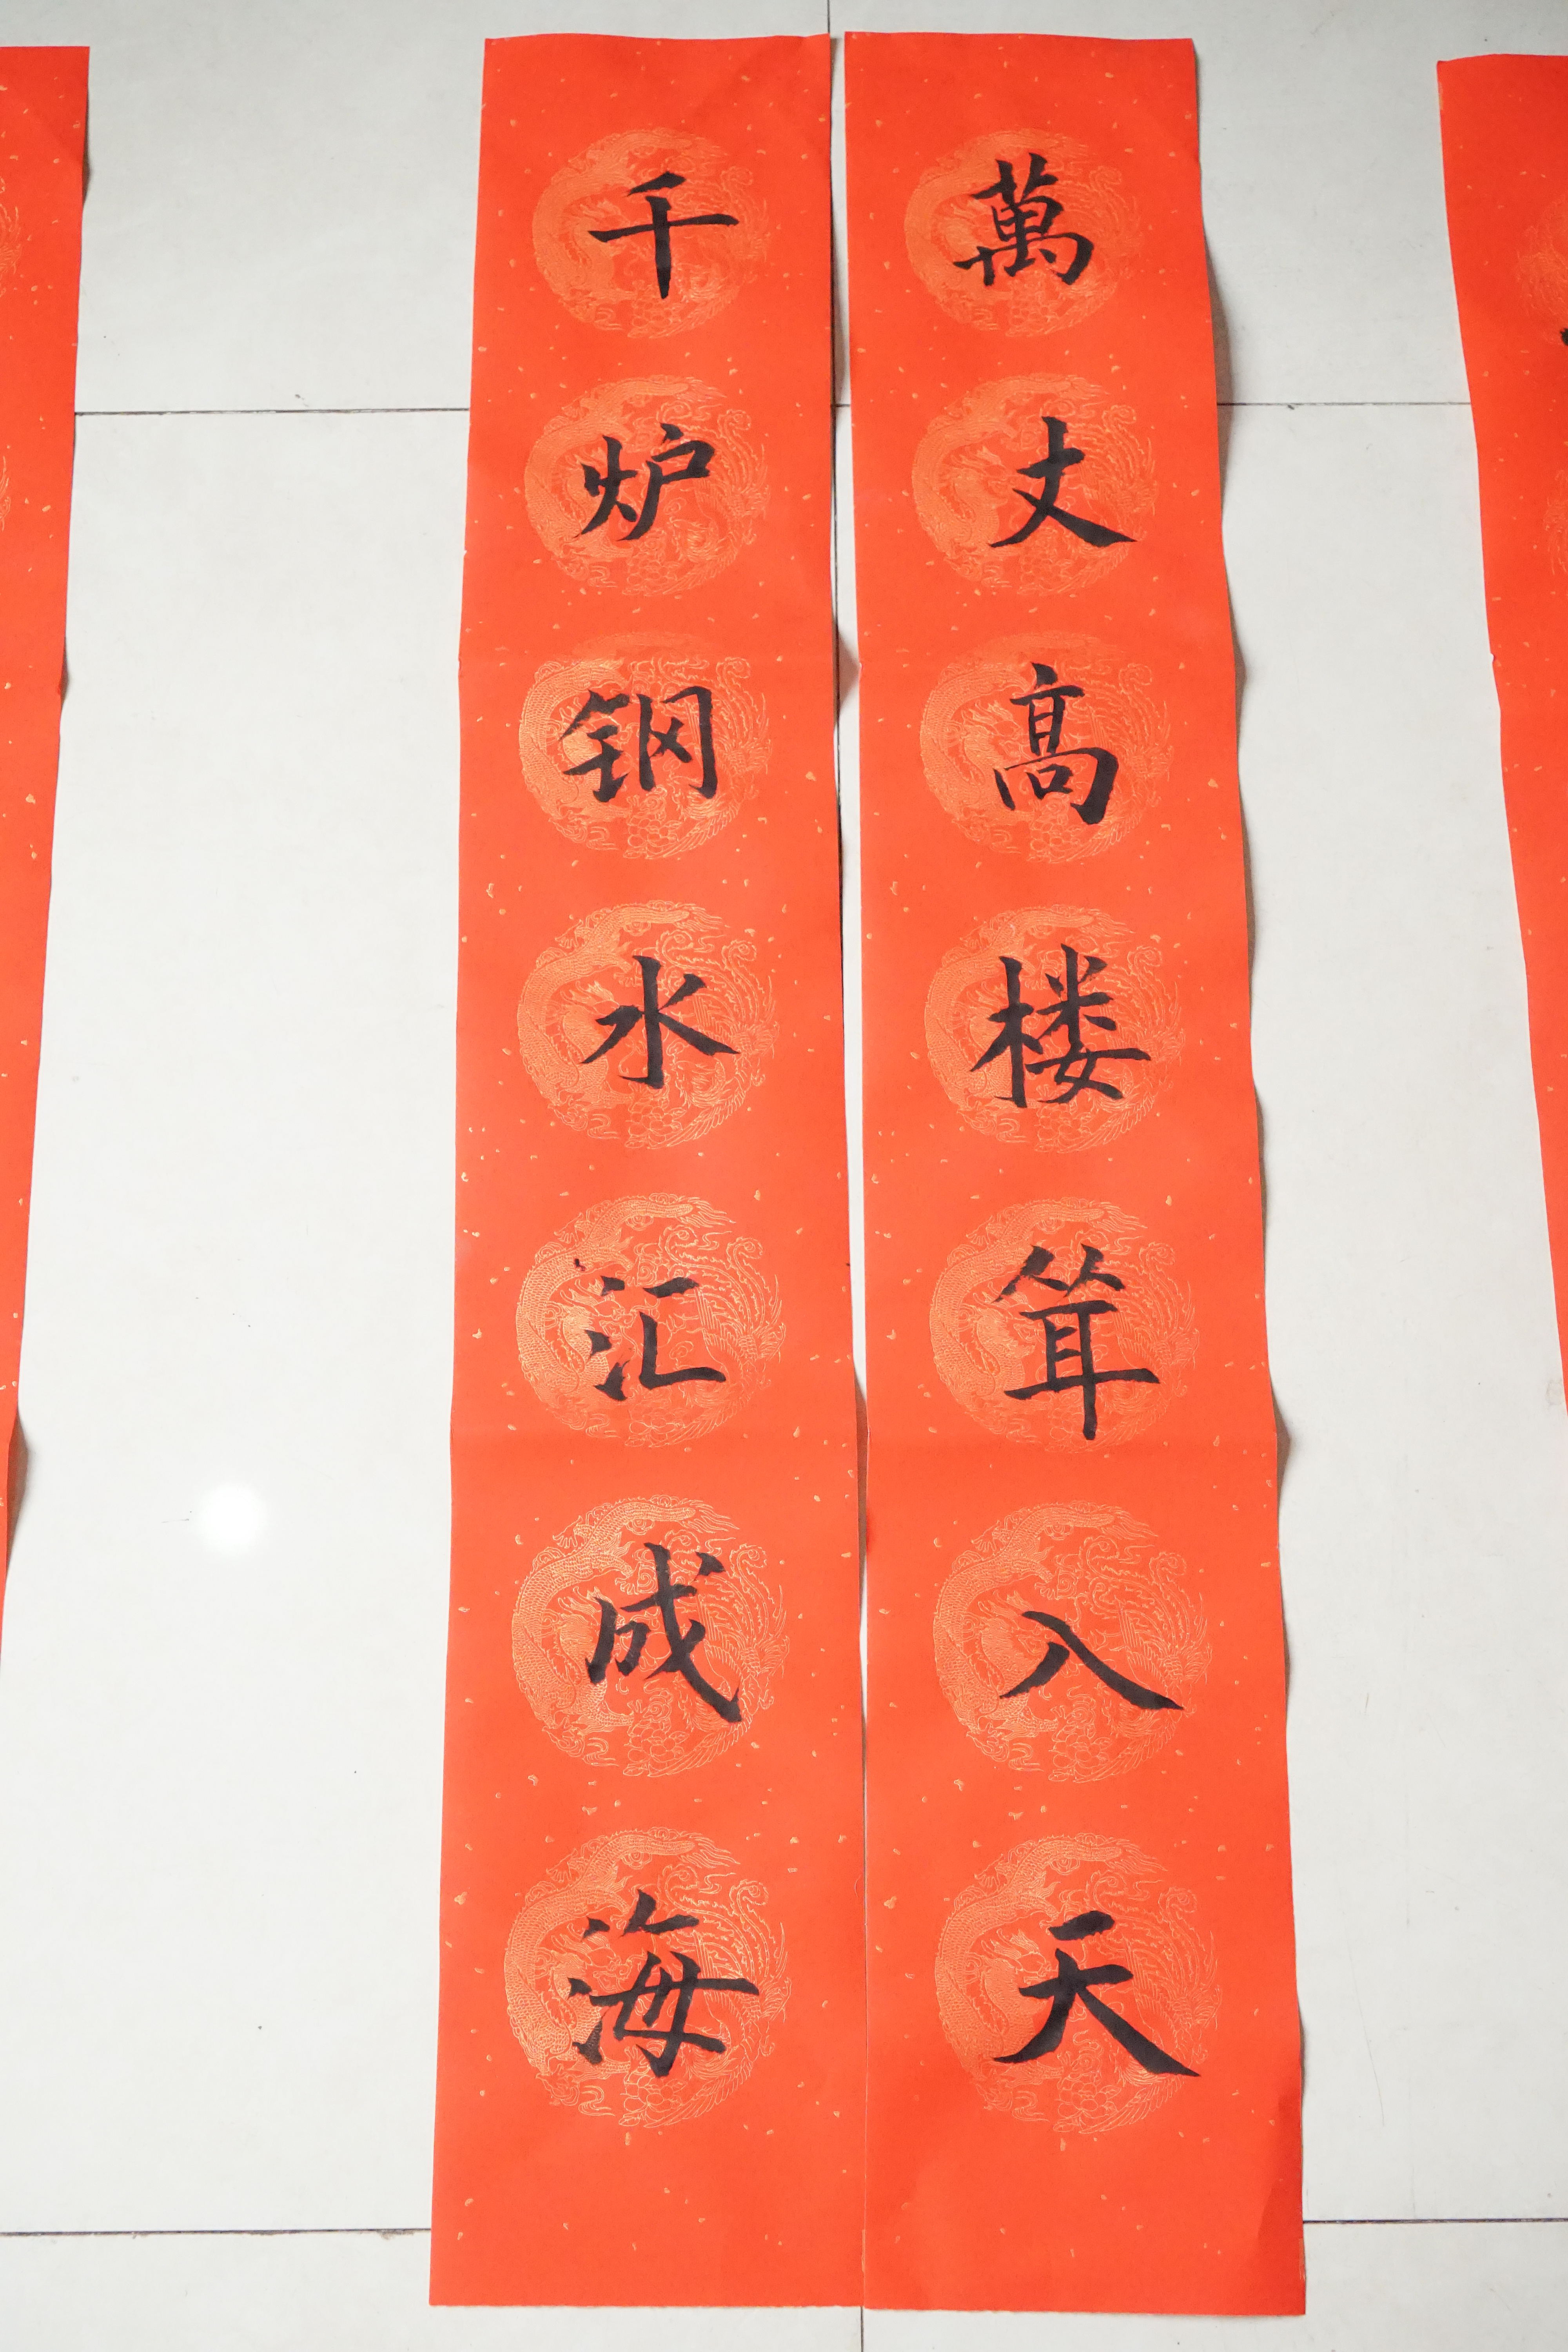 萬丈高楼耸入天
千炉钢水汇成海